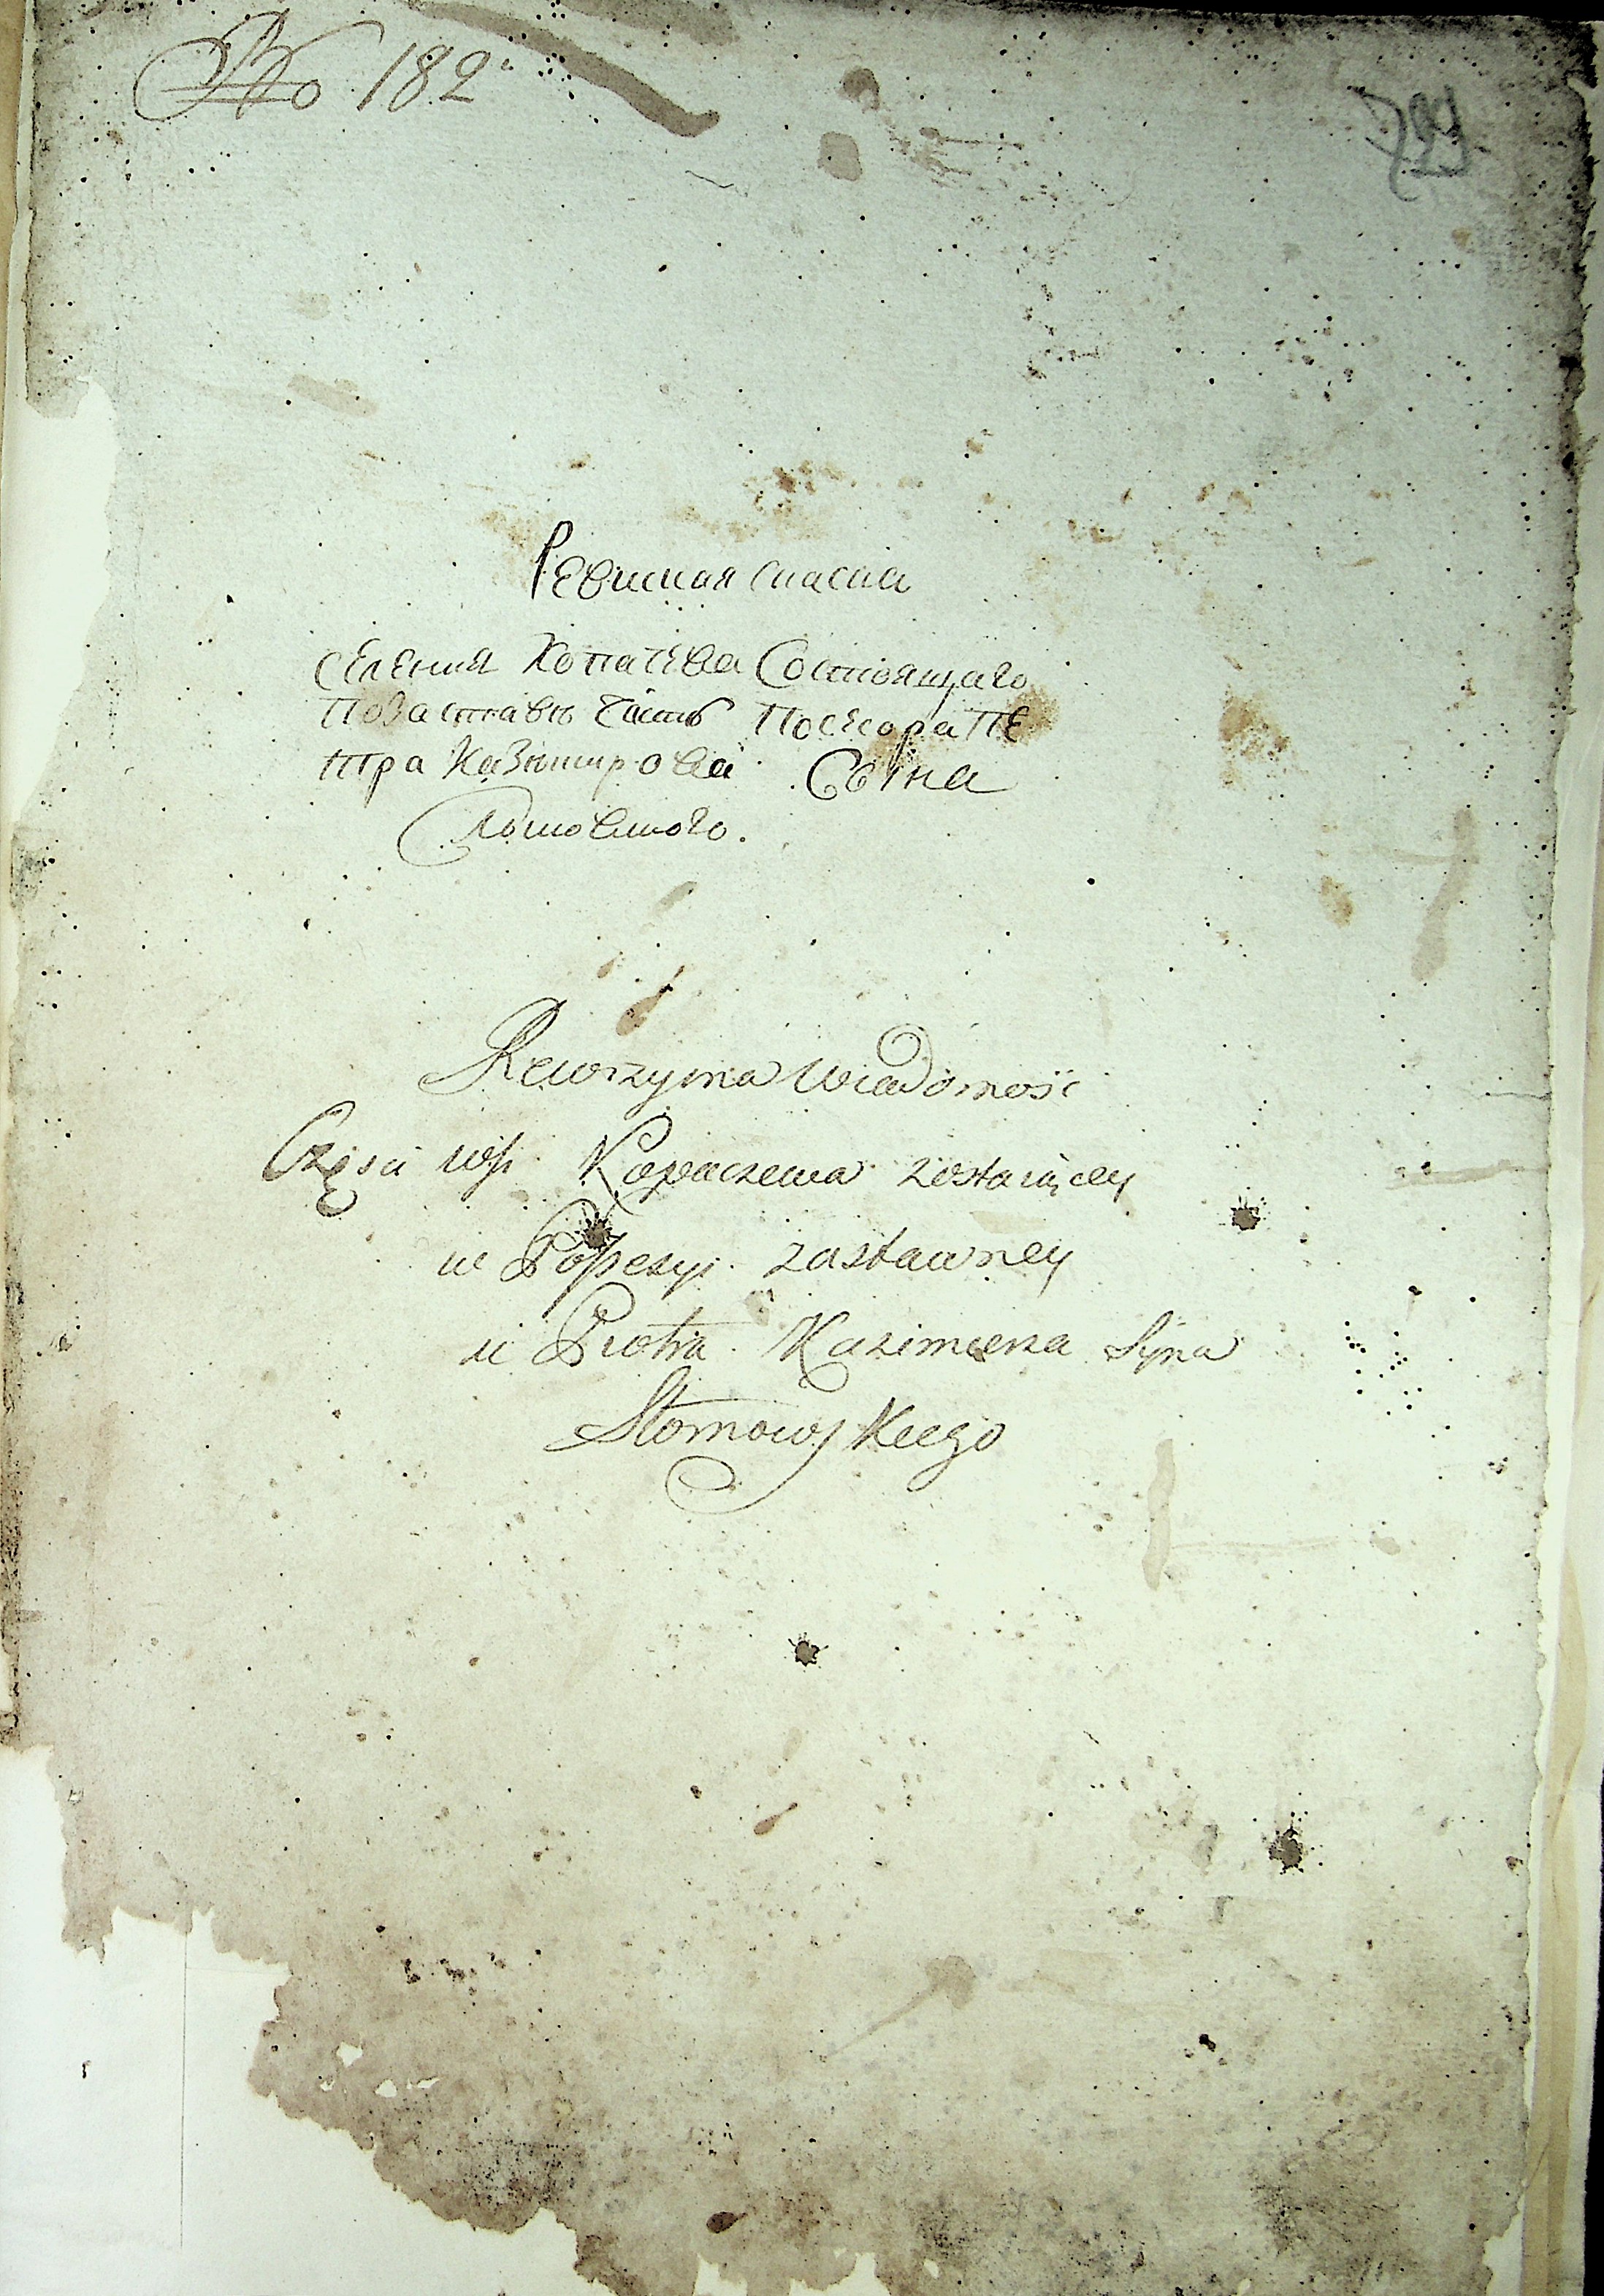 No 182
Ревиская сказка
селения Копачева Состоящаго
Позаставъ Часть Посесора Пе
тра Казымирова Сына
Стомовского.
Rewizyina Wiadomość
Części wsi Kopaczewa zostaiącey
w Possesyi zastawney
u Piotra Kazimierza Syna
Stomowskiego